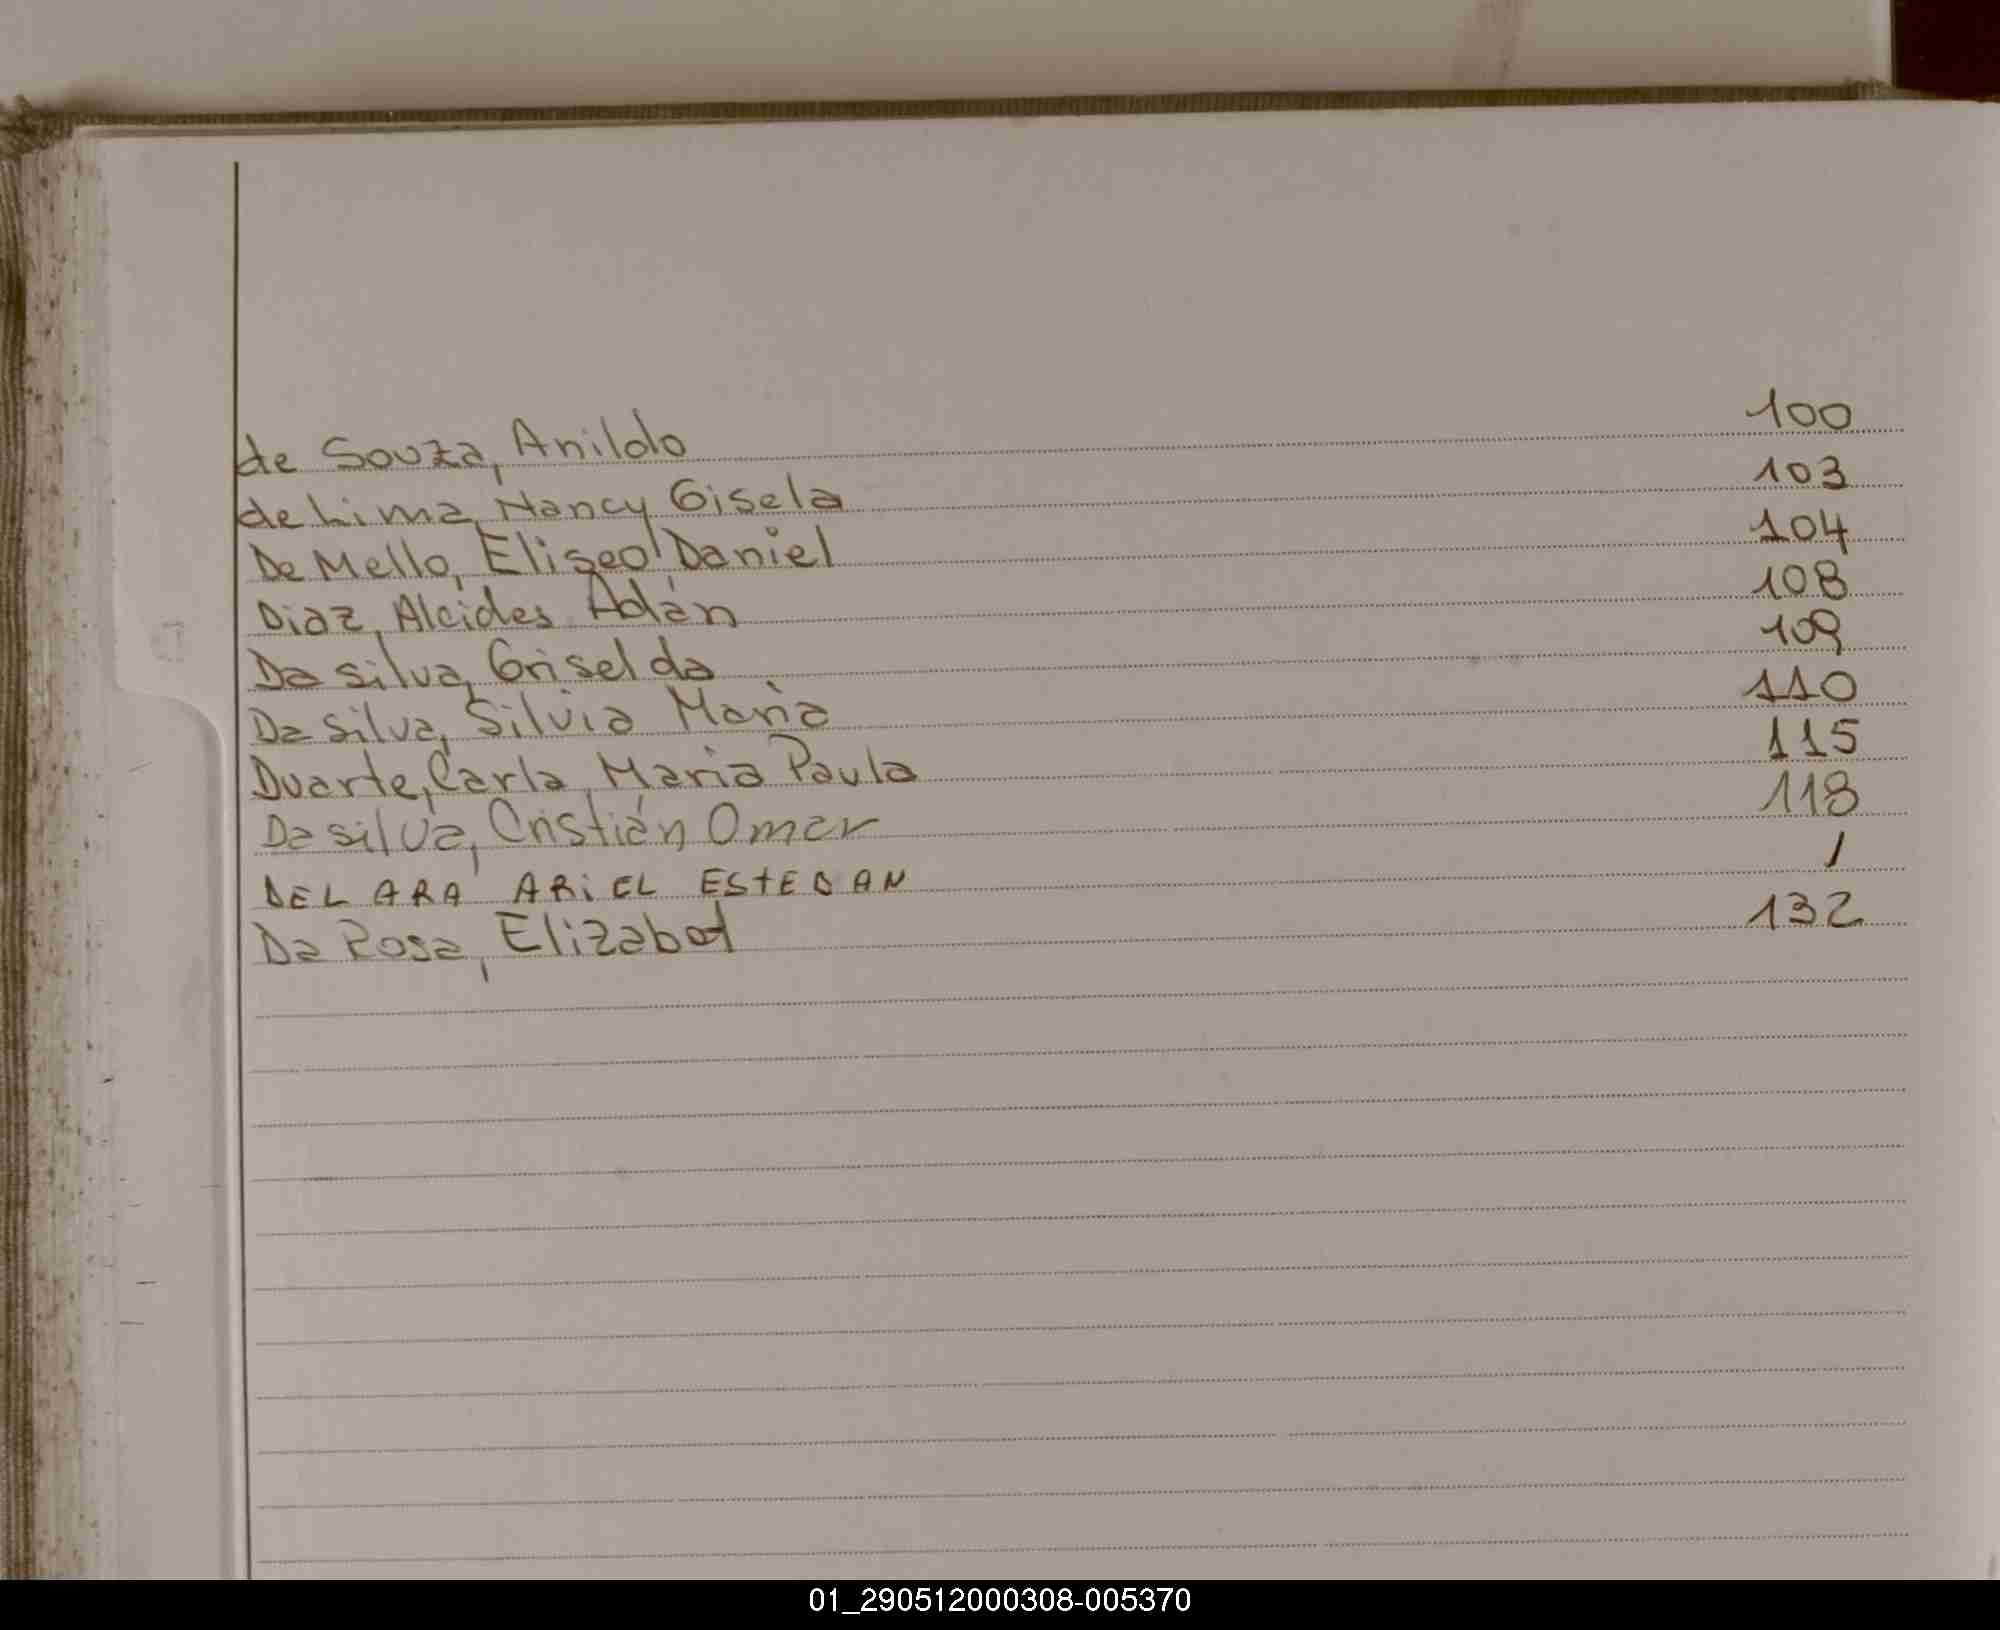 de Souza, Anildo 100
de Lima, Nancy Gisela 103
De Mello, Eliseo Daniel 104
Diaz, Alcides Adán 108
Da silva, Griselda 109
Da silva, Silvia Maria 110
Duarte, Carla Maria Paula 115
Da silva, Cristián Omar 118
DEL ARA ARiEL ESTEBAN 1
Da Rosa, Elizabet 132
01_290512000308-005370